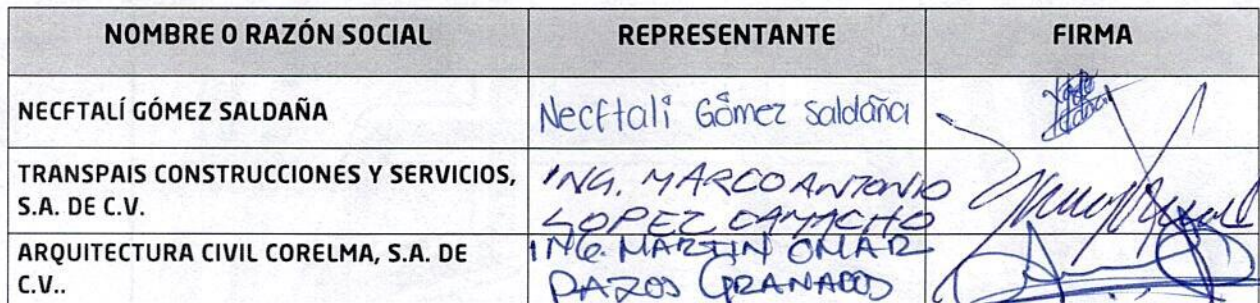 NOMBRE O RAZÓN SOCIAL REPRESENTANTE FIRMA
NECFTALÍ GÓMEZ SALDAÑA Necftali Gómez Saldaña
TRANSPAIS CONSTRUCCIONES Y SERVICIOS, ING. MARCO ANTONIO
S.A. DE C.V. LOPEZ CAMACHO
ARQUITECTURA CIVIL CORELMA, S.A. DE ING. MARTIN OMAR
C.V.. PAZOS GRANADOS